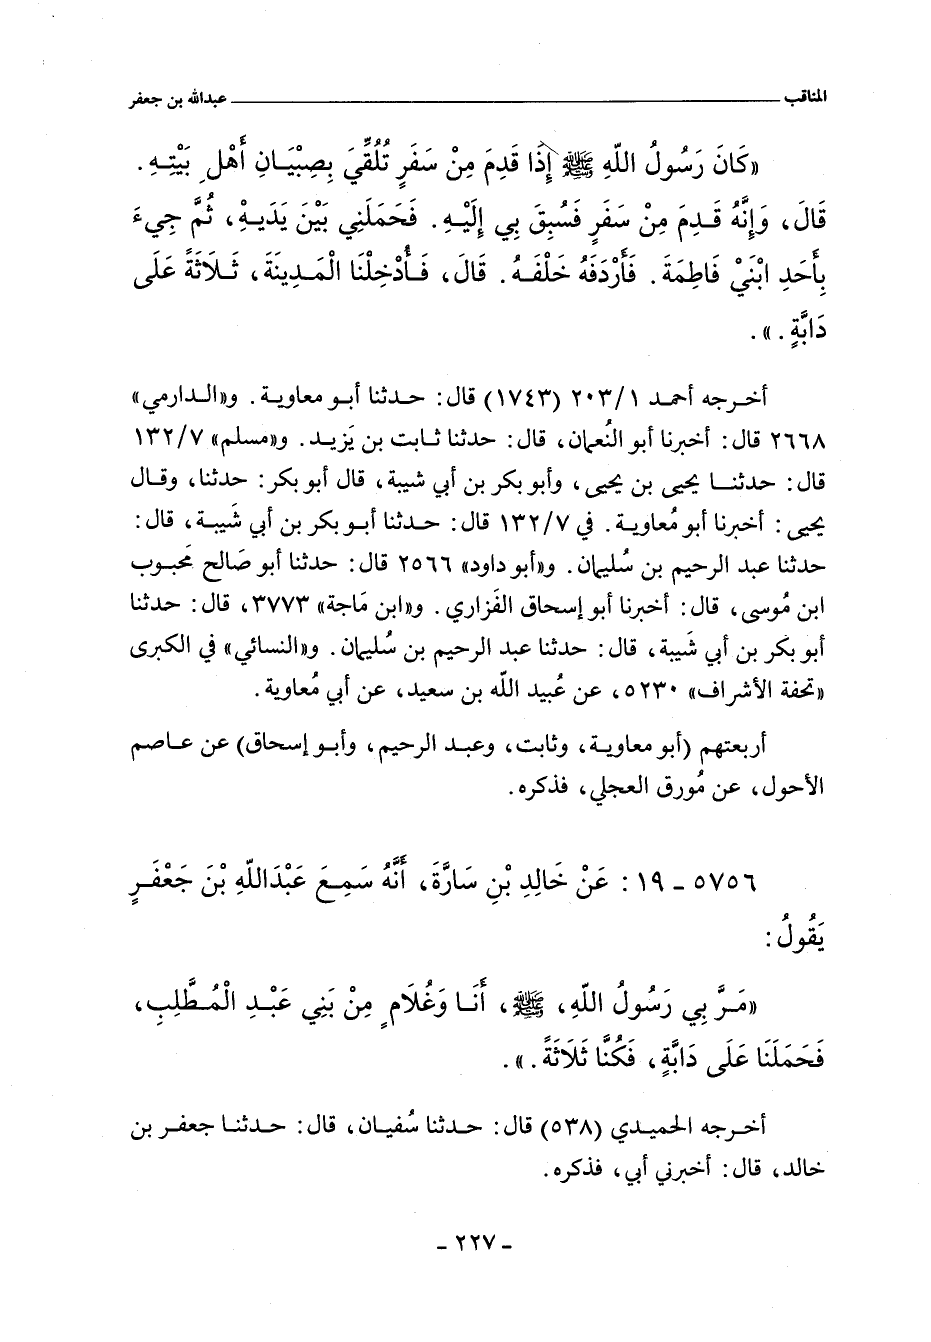 المناقب ـــــــــ عبدالله بن جعفر
«كَانَ رَسُولُ اللّهِ ﷺ إِذَا قَدِمَ مِنْ سَفَرٍ تُلُقِّيَ بِصِبْيَانِ أَهْلِ بَيْتِهِ .
قَالَ، وَإِنَّهُ قَدِمَ مِنْ سَفَرٍ فَسُبِقَ بِي إِلَيْهِ . فَحَمَلَنِي بَيْنَ يَدَيْهِ، ثُمَّ جِيءَ
بِأَحَدِ ابْنَيْ فَاطِمَةَ . فَأَرْدَفَهُ خَلْفَهُ . قَالَ، فَأُدْخِلْنَا الْمَدِينَةَ، ثَلَاثَةً عَلَى
دَابَّةٍ . » .
أخرجه أحمد ٢٠٣/١ (١٧٤٣) قال: حدثنا أبو معاوية . و«الدارمي»
٢٦٦٨ قال: أخبرنا أبو النُعمان، قال: حدثنا ثابت بن يَزيد. و«مسلم» ١٣٢/٧
قال: حدثنا يحيى بن يحيى، وأبو بكر بن أبي شيبة، قال أبو بكر: حدثنا، وقال
يحيى: أخبرنا أبو مُعاوية. في ١٣٢/٧ قال: حدثنا أبو بكر بن أبي شَيبة، قال:
حدثنا عبد الرحيم بن سُليمان. و«أبو داود» ٢٥٦٦ قال: حدثنا أبو صَالح مَحبوب
ابن مُوسى، قال: أخبرنا أبو إسحاق الفَزاري. و«ابن مَاجة» ٣٧٧٣، قال: حدثنا
أبو بكر بن أبي شَيبة، قال: حدثنا عبد الرحيم بن سُليمان. و«النسائي» في الكبرى
«تحفة الأشراف» ٥٢٣٠، عن عُبيد الله بن سعيد، عن أبي مُعاوية.
أربعتهم (أبو معاوية، وثابت، وعبد الرحيم، وأبو إسحاق) عن عاصم
الأحول، عن مُورق العجلي، فذكره.
٥٧٥٦ ـ ١٩: عَنْ خَالِدِ بْنِ سَارَّةَ، أَنَّهُ سَمِعَ عَبْدَاللّهِ بْنَ جَعْفَرٍ
يَقُولُ:
«مَرَّ بِي رَسُولُ اللّهِ، ﷺ، أَنَا وَغُلَامٍ مِنْ بَنِي عَبْدِ الْمُطَّلِبِ،
فَحَمَلَنَا عَلَى دَابَّةٍ، فَكُنَّا ثَلَاثَةً . » .
أخرجه الحميدي (٥٣٨) قال: حدثنا سُفيان، قال: حدثنا جعفر بن
خالد، قال: أخبرني أبي، فذكره.
ـ ٢٢٧ ـ